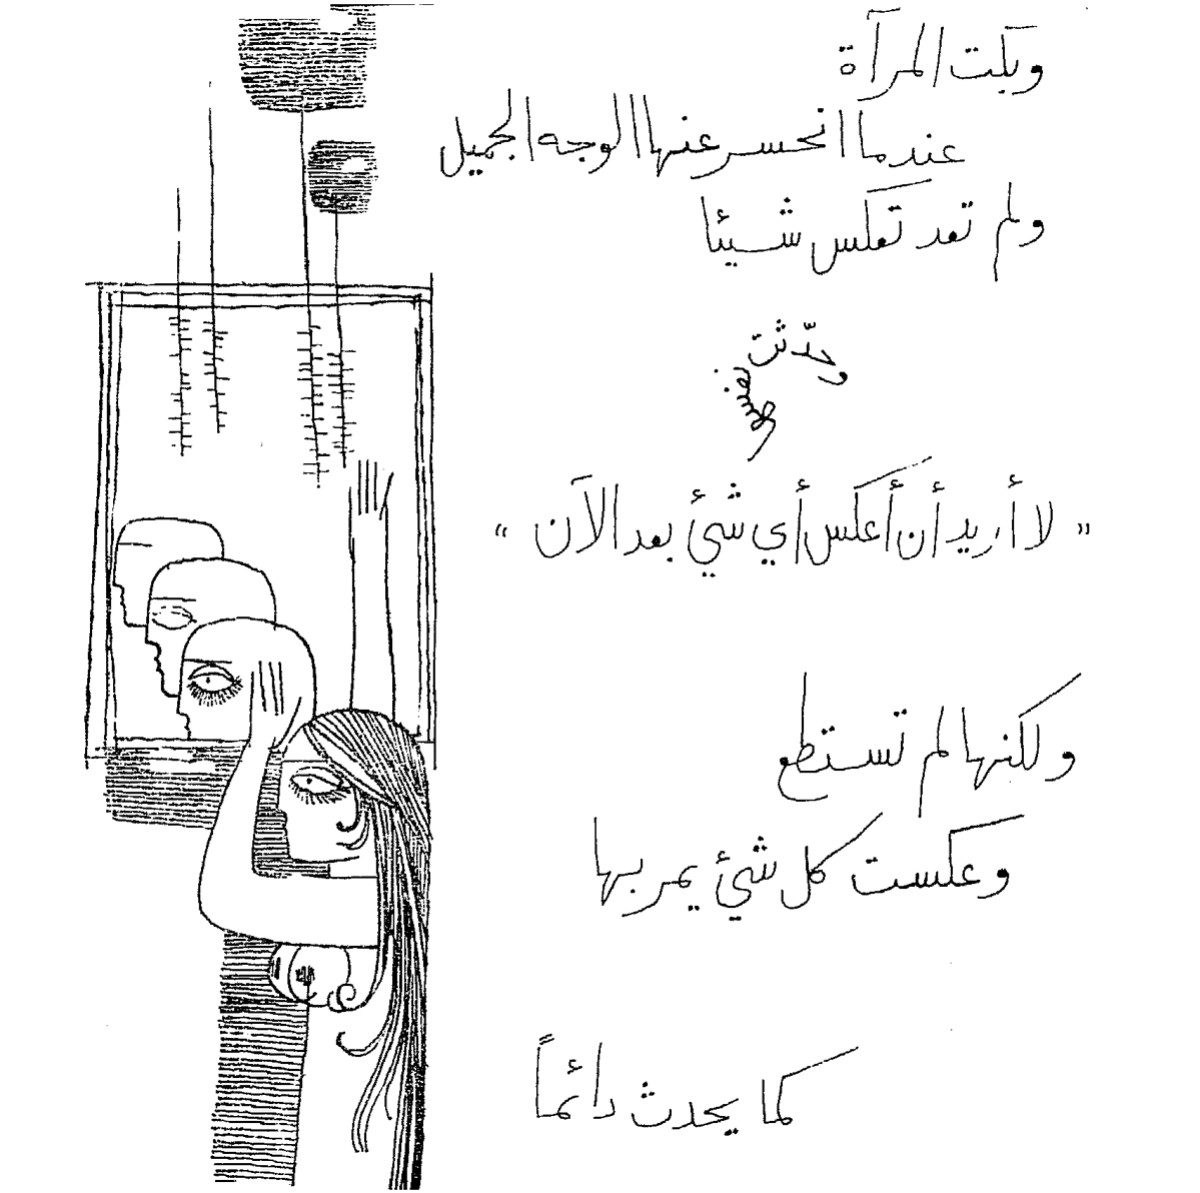 وبكت المرآة
عندما انحسر عنها الوجه الجميل
ولم تعد تعكس شيئا
وحدّثت نفسها
« لا أريد أن أعكس أي شئ بعد الآن »
ولكنها لم تستطع
وعكست كل شئ يمر بها
كما يحدث دائماً